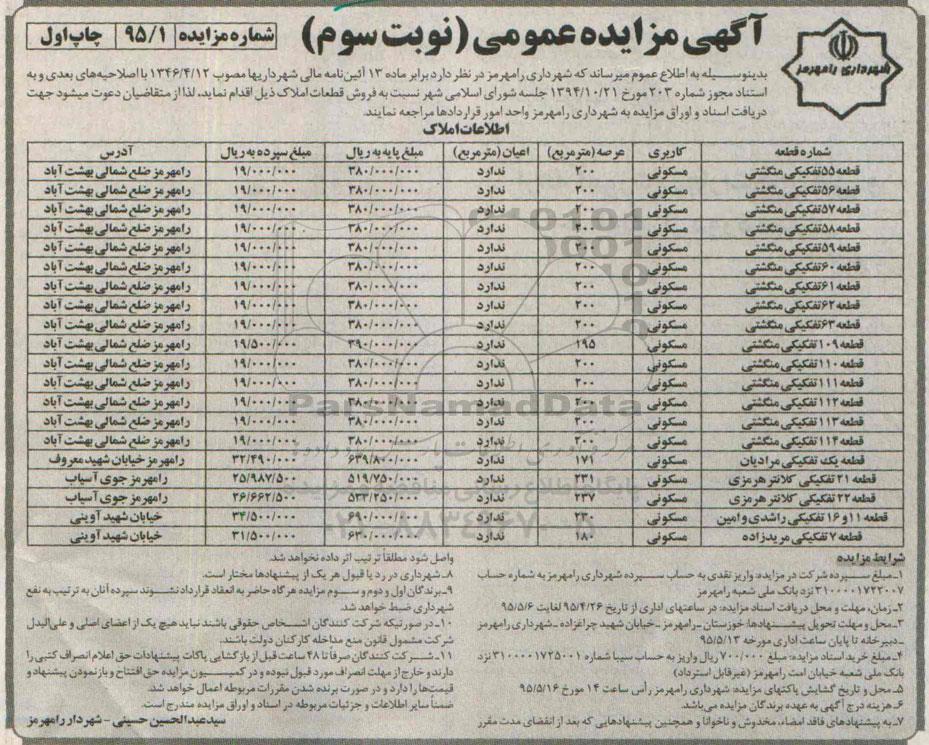 آگهی مزایده عمومی (نوبت سوم)
شماره مزایده ۹۵/۱ چاپ اول
شهرداری رامهرمز
بدینوسیله به اطلاع عموم میرساند که شهرداری رامهرمز در نظر دارد برابر ماده ۱۳ آئین‌نامه مالی شهرداریها مصوب ۱۳۴۶/۴/۱۲ با اصلاحیه‌های بعدی و به
استناد مجوز شماره ۲۰۳ مورخ ۱۳۹۴/۱۰/۲۱ جلسه شورای اسلامی شهر نسبت به فروش قطعات املاک ذیل اقدام نماید، لذا از متقاضیان دعوت میشود جهت
دریافت اسناد و اوراق مزایده به شهرداری رامهرمز واحد امور قراردادها مراجعه نمایند.
اطلاعات املاک
شماره قطعه کاربری عرصه (مترمربع) اعیان (مترمربع) مبلغ پایه به ریال مبلغ سپرده به ریال آدرس
قطعه ۵۵ تفکیکی منگشتی مسکونی ۲۰۰ ندارد ۳۸۰/۰۰۰/۰۰۰ ۱۹/۰۰۰/۰۰۰ رامهرمز ضلع شمالی بهشت آباد
قطعه ۵۶ تفکیکی منگشتی مسکونی ۲۰۰ ندارد ۳۸۰/۰۰۰/۰۰۰ ۱۹/۰۰۰/۰۰۰ رامهرمز ضلع شمالی بهشت آباد
قطعه ۵۷ تفکیکی منگشتی مسکونی ۲۰۰ ندارد ۳۸۰/۰۰۰/۰۰۰ ۱۹/۰۰۰/۰۰۰ رامهرمز ضلع شمالی بهشت آباد
قطعه ۵۸ تفکیکی منگشتی مسکونی ۲۰۰ ندارد ۳۸۰/۰۰۰/۰۰۰ ۱۹/۰۰۰/۰۰۰ رامهرمز ضلع شمالی بهشت آباد
قطعه ۵۹ تفکیکی منگشتی مسکونی ۲۰۰ ندارد ۳۸۰/۰۰۰/۰۰۰ ۱۹/۰۰۰/۰۰۰ رامهرمز ضلع شمالی بهشت آباد
قطعه ۶۰ تفکیکی منگشتی مسکونی ۲۰۰ ندارد ۳۸۰/۰۰۰/۰۰۰ ۱۹/۰۰۰/۰۰۰ رامهرمز ضلع شمالی بهشت آباد
قطعه ۶۱ تفکیکی منگشتی مسکونی ۲۰۰ ندارد ۳۸۰/۰۰۰/۰۰۰ ۱۹/۰۰۰/۰۰۰ رامهرمز ضلع شمالی بهشت آباد
قطعه ۶۲ تفکیکی منگشتی مسکونی ۲۰۰ ندارد ۳۸۰/۰۰۰/۰۰۰ ۱۹/۰۰۰/۰۰۰ رامهرمز ضلع شمالی بهشت آباد
قطعه ۶۳ تفکیکی منگشتی مسکونی ۲۰۰ ندارد ۳۸۰/۰۰۰/۰۰۰ ۱۹/۰۰۰/۰۰۰ رامهرمز ضلع شمالی بهشت آباد
قطعه ۱۰۹ تفکیکی منگشتی مسکونی ۱۹۵ ندارد ۳۹۰/۰۰۰/۰۰۰ ۱۹/۵۰۰/۰۰۰ رامهرمز ضلع شمالی بهشت آباد
قطعه ۱۱۰ تفکیکی منگشتی مسکونی ۲۰۰ ندارد ۳۸۰/۰۰۰/۰۰۰ ۱۹/۰۰۰/۰۰۰ رامهرمز ضلع شمالی بهشت آباد
قطعه ۱۱۱ تفکیکی منگشتی مسکونی ۲۰۰ ندارد ۳۸۰/۰۰۰/۰۰۰ ۱۹/۰۰۰/۰۰۰ رامهرمز ضلع شمالی بهشت آباد
قطعه ۱۱۲ تفکیکی منگشتی مسکونی ۲۰۰ ندارد ۳۸۰/۰۰۰/۰۰۰ ۱۹/۰۰۰/۰۰۰ رامهرمز ضلع شمالی بهشت آباد
قطعه ۱۱۳ تفکیکی منگشتی مسکونی ۲۰۰ ندارد ۳۸۰/۰۰۰/۰۰۰ ۱۹/۰۰۰/۰۰۰ رامهرمز ضلع شمالی بهشت آباد
قطعه ۱۱۴ تفکیکی منگشتی مسکونی ۲۰۰ ندارد ۳۸۰/۰۰۰/۰۰۰ ۱۹/۰۰۰/۰۰۰ رامهرمز ضلع شمالی بهشت آباد
قطعه یک تفکیکی مرادیان مسکونی ۱۷۱ ندارد ۶۳۹/۸۰۰/۰۰۰ ۳۲/۴۹۰/۰۰۰ رامهرمز خیابان شهید معروف
قطعه ۲۱ تفکیکی کلانتر هرمزی مسکونی ۲۳۱ ندارد ۵۱۹/۷۵۰/۰۰۰ ۲۵/۹۸۷/۵۰۰ رامهرمز جوی آسیاب
قطعه ۲۲ تفکیکی کلانتر هرمزی مسکونی ۲۳۷ ندارد ۵۳۳/۲۵۰/۰۰۰ ۲۶/۶۶۲/۵۰۰ رامهرمز جوی آسیاب
قطعه ۱۱ و ۱۶ تفکیکی راشدی و امین مسکونی ۲۳۰ ندارد ۶۹۰/۰۰۰/۰۰۰ ۳۴/۵۰۰/۰۰۰ خیابان شهید آوینی
قطعه ۷ تفکیکی مریدزاده مسکونی ۱۸۰ ندارد ۶۳۰/۰۰۰/۰۰۰ ۳۱/۵۰۰/۰۰۰ خیابان شهید آوینی
شرایط مزایده
۱ـ مبلغ سپرده شرکت در مزایده: واریز نقدی به حساب سپرده شهرداری رامهرمز به شماره حساب
۳۱۰۰۰۰۱۷۲۲۰۰۷ نزد بانک ملی شعبه رامهرمز
۲ـ زمان، مهلت و محل دریافت اسناد مزایده: در ساعتهای اداری از تاریخ ۹۵/۴/۲۶ لغایت ۹۵/۵/۶
۳ـ محل و مهلت تحویل پیشنهادها: خوزستان ـ رامهرمز ـ خیابان شهید چراغزاده ـ شهرداری رامهرمز
ـ دبیرخانه تا پایان ساعت اداری مورخه ۹۵/۵/۱۳
۴ـ مبلغ خرید اسناد مزایده: مبلغ ۷۰۰/۰۰۰ ریال واریز به حساب سیبا شماره ۳۱۰۰۰۰۱۷۲۵۰۰۱ نزد
بانک ملی شعبه خیابان امت رامهرمز (غیرقابل استرداد)
۵ـ محل و تاریخ گشایش پاکتهای مزایده: شهرداری رامهرمز رأس ساعت ۱۴ مورخ ۹۵/۵/۱۶
۶ـ هزینه درج آگهی به عهده برندگان مزایده می‌باشد.
۷ـ به پیشنهادهای فاقد امضاء، مخدوش و ناخوانا و همچنین پیشنهادهایی که بعد از انقضای مدت مقرر
واصل شود مطلقاً ترتیب اثر داده نخواهد شد.
۸ـ شهرداری در رد یا قبول هر یک از پیشنهادها مختار است.
۹ـ برندگان اول و دوم و سوم مزایده هرگاه حاضر به انعقاد قرارداد نشوند سپرده آنان به ترتیب به نفع
شهرداری ضبط خواهد شد.
۱۰ـ در صورتیکه شرکت کنندگان اشخاص حقوقی باشند نباید هیچ یک از اعضای اصلی و علی‌البدل
شرکت مشمول قانون منع مداخله کارکنان دولت باشند.
۱۱ـ شرکت کنندگان صرفاً تا ۴۸ ساعت قبل از بازگشایی پاکات پیشنهادات حق اعلام انصراف کتبی را
دارند و خارج از مهلت انصراف مورد قبول نبوده و در کمیسیون مزایده حق افتتاح و بازنمودن پیشنهاد و
قیمت‌ها را دارد و در صورت برنده شدن مقررات مربوطه اعمال خواهد شد.
ضمناً سایر اطلاعات و جزئیات مربوطه در اسناد و اوراق مزایده مندرج است.
سیدعبدالحسین حسینی - شهردار رامهرمز
ParsNamadData